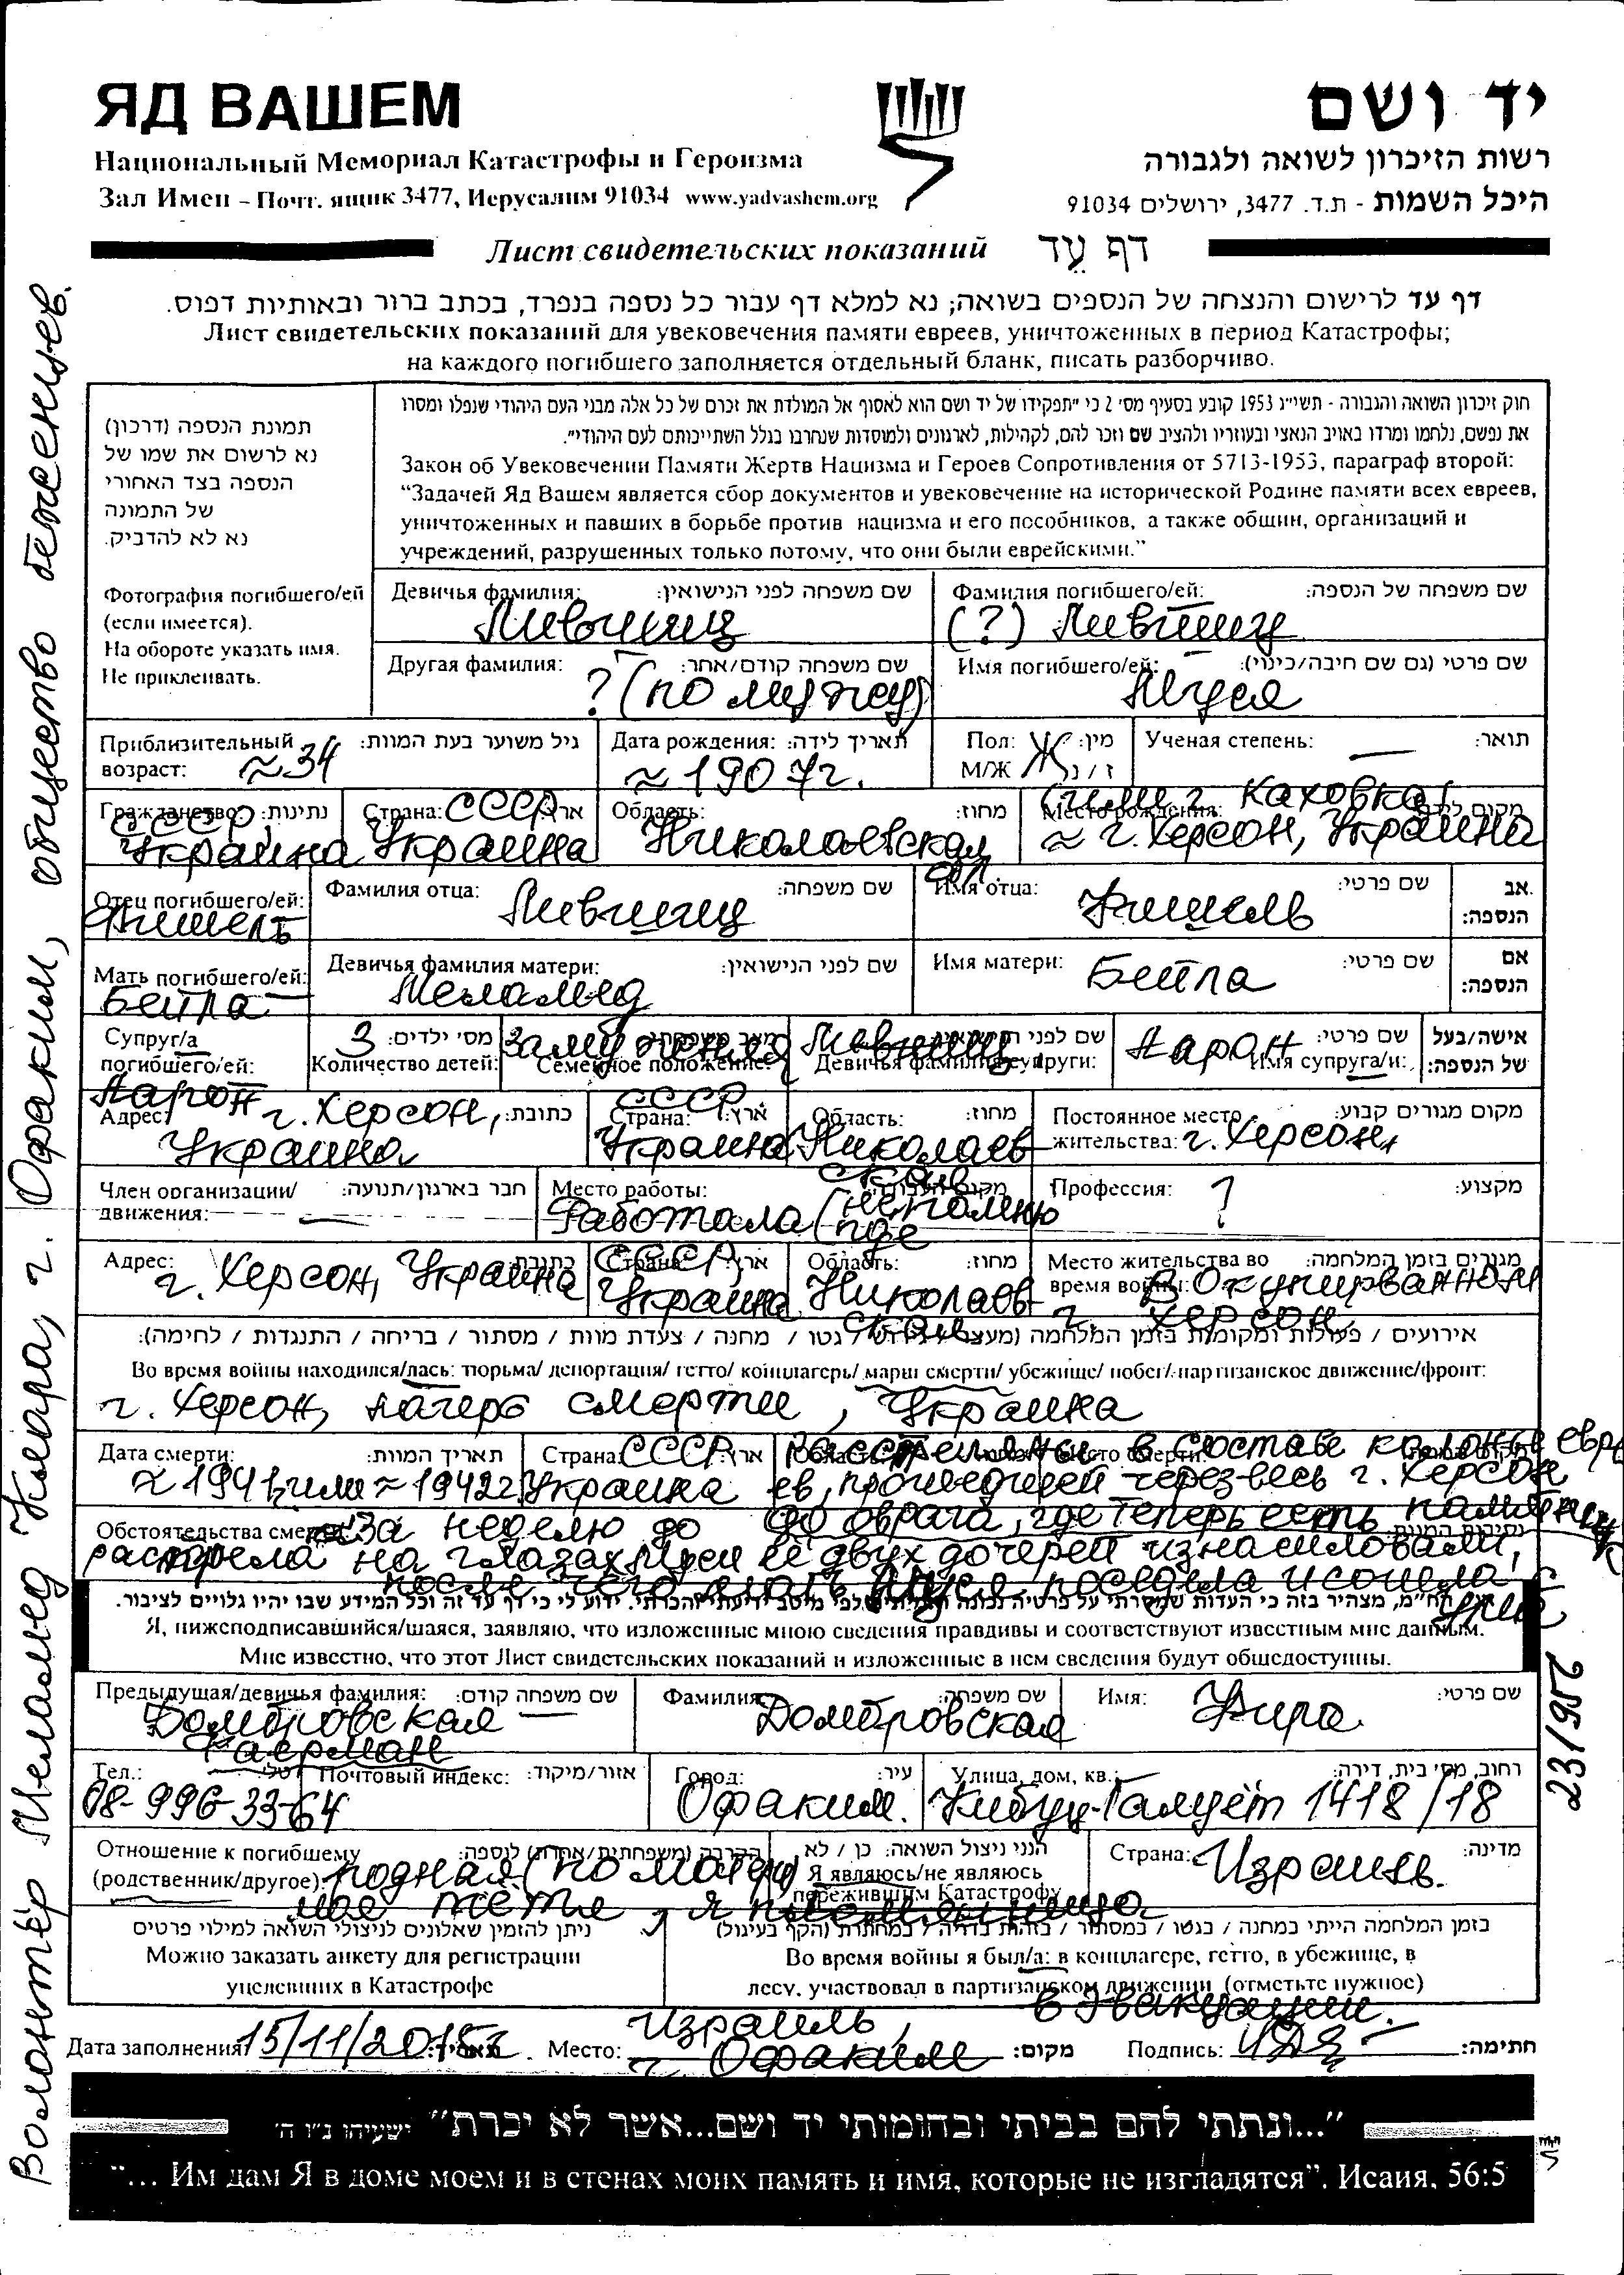 ЯД ВАШЕМ
יד ושם
Национальный Мемориал Катастрофы и Героизма
רשות הזיכרון לשואה ולגבורה
Зал Имен – Почт. ящик 3477, Иерусалим 91034 www.yadvashem.org
היכל השמות - ת.ד. 3477, ירושלים 91034
Лист свидетельских показаний דף עד
דף עד לרישום והנצחה של הנספים בשואה; נא למלא דף עבור כל נספה בנפרד, בכתב ברור ובאותיות דפוס.
Лист свидетельских показаний для увековечения памяти евреев, уничтоженных в период Катастрофы;
на каждого погибшего заполняется отдельный бланк, писать разборчиво.
תמונת הנספה (דרכון)
נא לרשום את שמו של
הנספה בצד האחורי
של התמונה
נא לא להדביק.
Фотография погибшего/ей
(если имеется).
На обороте указать имя.
Не приклеивать.
חוק זיכרון השואה והגבורה - תשי"ג 1953 קובע בסעיף מס' 2 כי "תפקידו של יד ושם הוא לאסוף אל המולדת את זכרם של כל אלה מבני העם היהודי שנפלו ומסרו
את נפשם, נלחמו ומרדו באויב הנאצי ובעוזריו ולהציב שם וזכר להם, לקהילות, לארגונים ולמוסדות שנחרבו בגלל השתייכותם לעם היהודי".
Закон об Увековечении Памяти Жертв Нацизма и Героев Сопротивления от 5713-1953, параграф второй:
“Задачей Яд Вашем является сбор документов и увековечение на исторической Родине памяти всех евреев,
уничтоженных и павших в борьбе против нацизма и его пособников, а также общин, организаций и
учреждений, разрушенных только потому, что они были еврейскими.”
Девичья фамилия: שם משפחה לפני הנישואין:
Лившиц
Фамилия погибшего/ей: שם משפחה של הנספה:
(?) Лившиц
Другая фамилия: שם משפחה קודם/אחר:
? (по мужу)
Имя погибшего/ей: שם פרטי (גם שם חיבה/כינוי):
Нуся
Приблизительный возраст: גיל משוער בעת המוות:
≈ 34
Дата рождения: תאריך לידה:
≈ 1907г.
Пол: М/Ж מין: ז / נ
Ж
Ученая степень: תואר:
—
Гражданство: נתינות:
СССР,
Украина
Страна: ארץ:
СССР
Украина
Область: מחוז:
Николаевская
обл.
Место рождения:
(или г. Каховка)
≈ г. Херсон, Украина
Отец погибшего/ей:
Фишель
Фамилия отца: שם משפחה:
Лившиц
Имя отца: שם פרטי:
Фишель
אב הנספה:
Мать погибшего/ей:
Бейла
Девичья фамилия матери: שם לפני הנישואין:
Меламед
Имя матери: שם פרטי:
Бейла
אם הנספה:
Супруг/а погибшего/ей:
Аарон
Количество детей: מס' ילדים:
3
Семейное положение:
Замужем
Девичья фамилия супруги:
Лившиц
Имя супруга/и: שם פרטי:
Аарон
אישה/בעל של הנספה:
Адрес: כתובת:
г. Херсон,
Украина
Страна: ארץ:
СССР
Украина
Область: מחוז:
Николаев
ская
Постоянное место жительства: מקום מגורים קבוע:
г. Херсон,
Член организации/движения: חבר בארגון/תנועה:
—
Место работы:
Работала (не помню
где
Профессия: מקצוע:
?
Адрес: כתובת:
г. Херсон, Украина
Страна: ארץ:
СССР,
Украина
Область: מחוז:
Николаев
ская
Место жительства во время войны: מגורים בזמן המלחמה:
В Окупированном
г. Херсон
אירועים / פעולות ומקומות בזמן המלחמה (מעצר / גירוש / גטו / מחנה / צעדת מוות / מסתור / בריחה / התנגדות / לחימה):
Во время войны находился/лась: тюрьма/ депортация/ гетто/ концлагерь/ марш смерти/ убежище/ побег/ партизанское движение/фронт:
г. Херсон, лагерь смерти, Украина
Дата смерти: תאריך המוות:
≈ 1941, или ≈ 1942г.
Страна: ארץ:
СССР
Украина
расстреляны в составе колонны евре
ев, прошедшей через весь г. Херсон
до оврага, где теперь есть памятник
Обстоятельства смерти: За неделю до
расстрела на глазах Нуси её двух дочерей изнасиловали,
после чего мать Нуся поседела и сошла
с ума
הח"מ, מצהיר בזה כי העדות שמסרתי על פרטיה נכונה ואמיתית לפי מיטב ידיעתי והכרתי. ידוע לי כי דף עד זה וכל המידע שבו יהיו גלויים לציבור.
Я, нижеподписавшийся/шаяся, заявляю, что изложенные мною сведения правдивы и соответствуют известным мне данным.
Мне известно, что этот Лист свидетельских показаний и изложенные в нем сведения будут общедоступны.
Предыдущая/девичья фамилия: שם משפחה קודם:
Домбровская —
Фамилия: שם משפחה:
Домбровская
Имя: שם פרטי:
Фира
Тел.: טל':
08-996-33-64
Почтовый индекс: אזור/מיקוד:
Город: עיר:
Офаким.
Улица, дом, кв.: רחוב, מס' בית, דירה:
Кибуц-Галуёт 1418/18
Отношение к погибшему (родственник/другое): הקרבה (משפחתית/אחרת) לנספה:
родная (по матери)
моя тётя, я племянница
הנני ניצול השואה: כן / לא
Я являюсь/не являюсь
пережившим Катастрофу
Страна: מדינה:
Израиль.
ניתן להזמין שאלונים לניצולי השואה למילוי פרטים
Можно заказать анкету для регистрации
уцелевших в Катастрофе
בזמן המלחמה הייתי במחנה / בגטו / במסתור / בזהות בדויה / במחתרת (הקף בעיגול)
Во время войны я был/а: в концлагере, гетто, в убежище, в
лесу, участвовал в партизанском движении (отметьте нужное)
в Эвакуации.
Дата заполнения 15/11/2015г. תאריך:
Место: מקום:
Израиль,
г. Офаким
Подпись: חתימה:
"...ונתתי להם בביתי ובחומותי יד ושם...אשר לא יכרת" ישעיהו נ"ו ה'
“... Им дам Я в доме моем и в стенах моих память и имя, которые не изгладятся”. Исаия, 56:5
Волонтёр Меламед Клара, г. Офаким, общество беженцев.